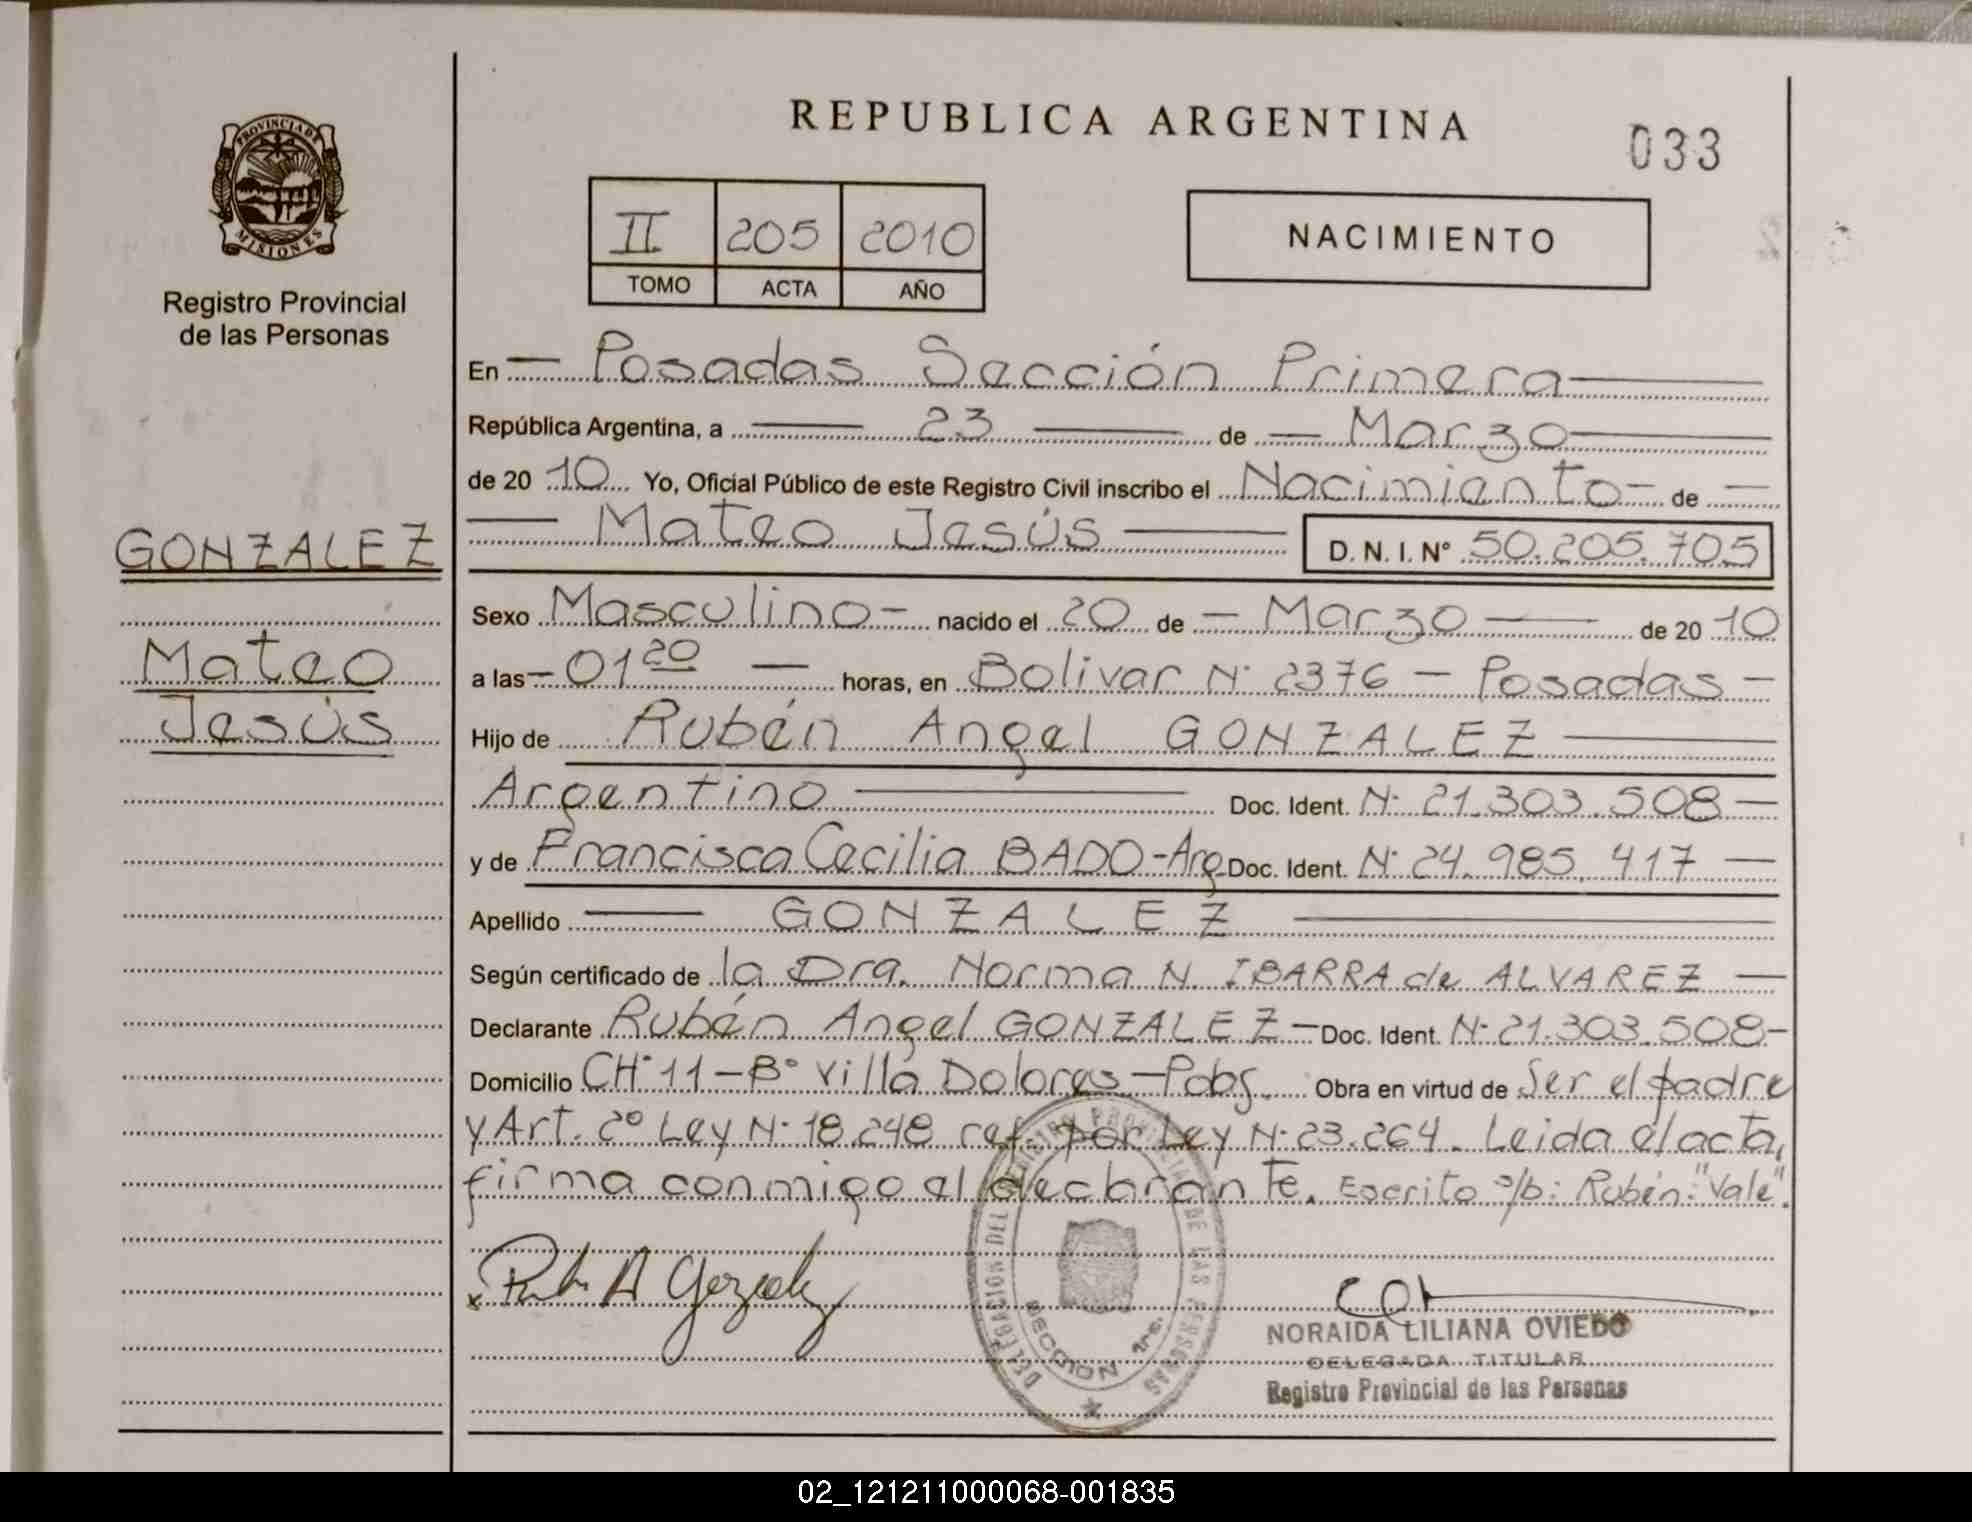 PROVINCIA DE
MISIONES
Registro Provincial
de las Personas
GONZALEZ
Mateo
Jesús
REPUBLICA ARGENTINA
033
II 205 2010
TOMO ACTA AÑO
NACIMIENTO
En Posadas Sección Primera
República Argentina, a 23 de Marzo
de 20 10 Yo, Oficial Público de este Registro Civil inscribo el Nacimiento de
Mateo Jesús D. N. I. Nº 50.205.705
Sexo Masculino nacido el 20 de Marzo de 20 10
a las 01 20 horas, en Bolivar Nº 2376 - Posadas
Hijo de Rubén Angel GONZALEZ
Argentino Doc. Ident. Nº 21.303.508
y de Francisca Cecilia BADO-Arg Doc. Ident. Nº 24.985.417
Apellido GONZALEZ
Según certificado de la Dra. Norma N. IBARRA de ALVAREZ
Declarante Rubén Angel GONZALEZ Doc. Ident. Nº 21.303.508
Domicilio CHº 11 - Bº Villa Dolores - Pdas. Obra en virtud de Ser el padre
y Art. 2º Ley Nº 18.248 ref. por Ley Nº 23.264. Leida el acta,
firma conmigo el declarante. Escrito s/b: Rubén: "Vale".
Rubén A Gonzalez
DELEGACION DEL REGISTRO PROVINCIAL DE LAS PERSONAS
SECCION 1ra.
NORAIDA LILIANA OVIEDO
DELEGADA TITULAR
Registro Provincial de las Personas
02_121211000068-001835